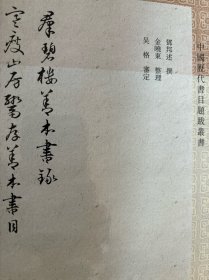 中國歷代書目題跋叢書
鄧邦述 撰
金曉東 整理
吳格 審定
羣碧樓善本書錄
寒瘦山房鬻存善本書目